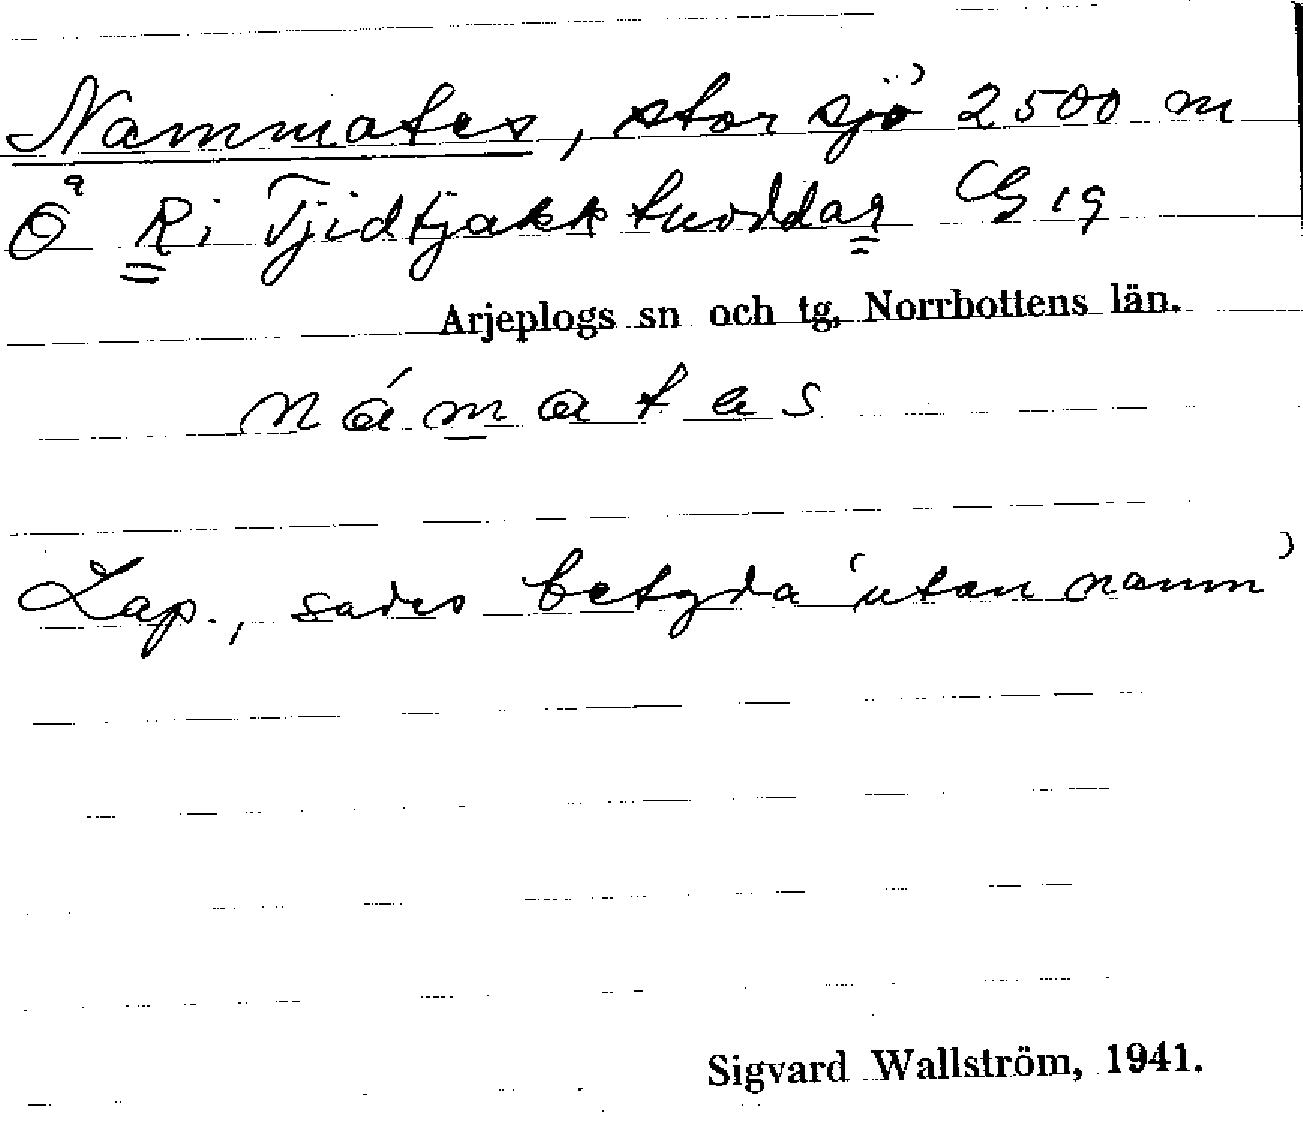 Nammates, stor sjö 2500 m
Ö Ri Tjidtjakk tuoddar G 19
Arjeplogs sn och tg, Norrbottens län.
námatas
Lap., sades betyda 'utan namn'
Sigvard Wallström, 1941.